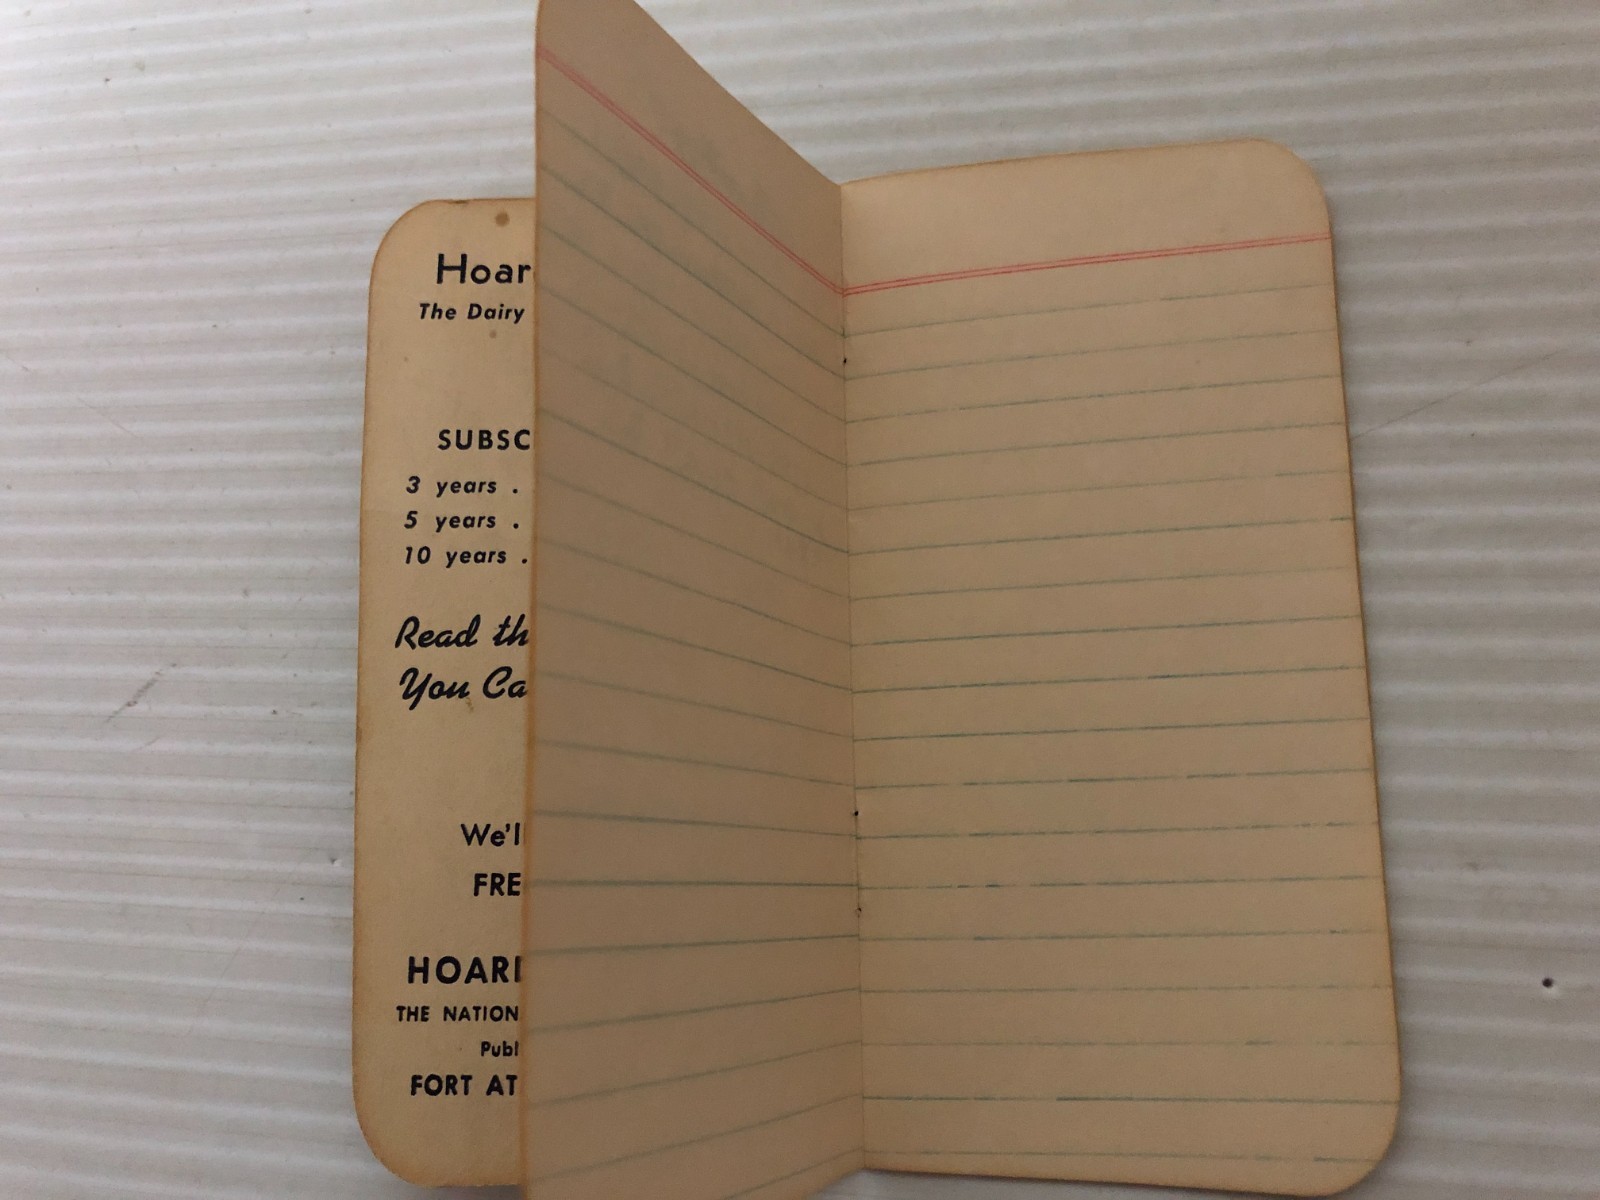 Hoar
The Dairy
SUBSC
3 years .
5 years .
10 years .
Read th
You Ca
We'll
FRE
HOARD
THE NATION
Publ
FORT AT